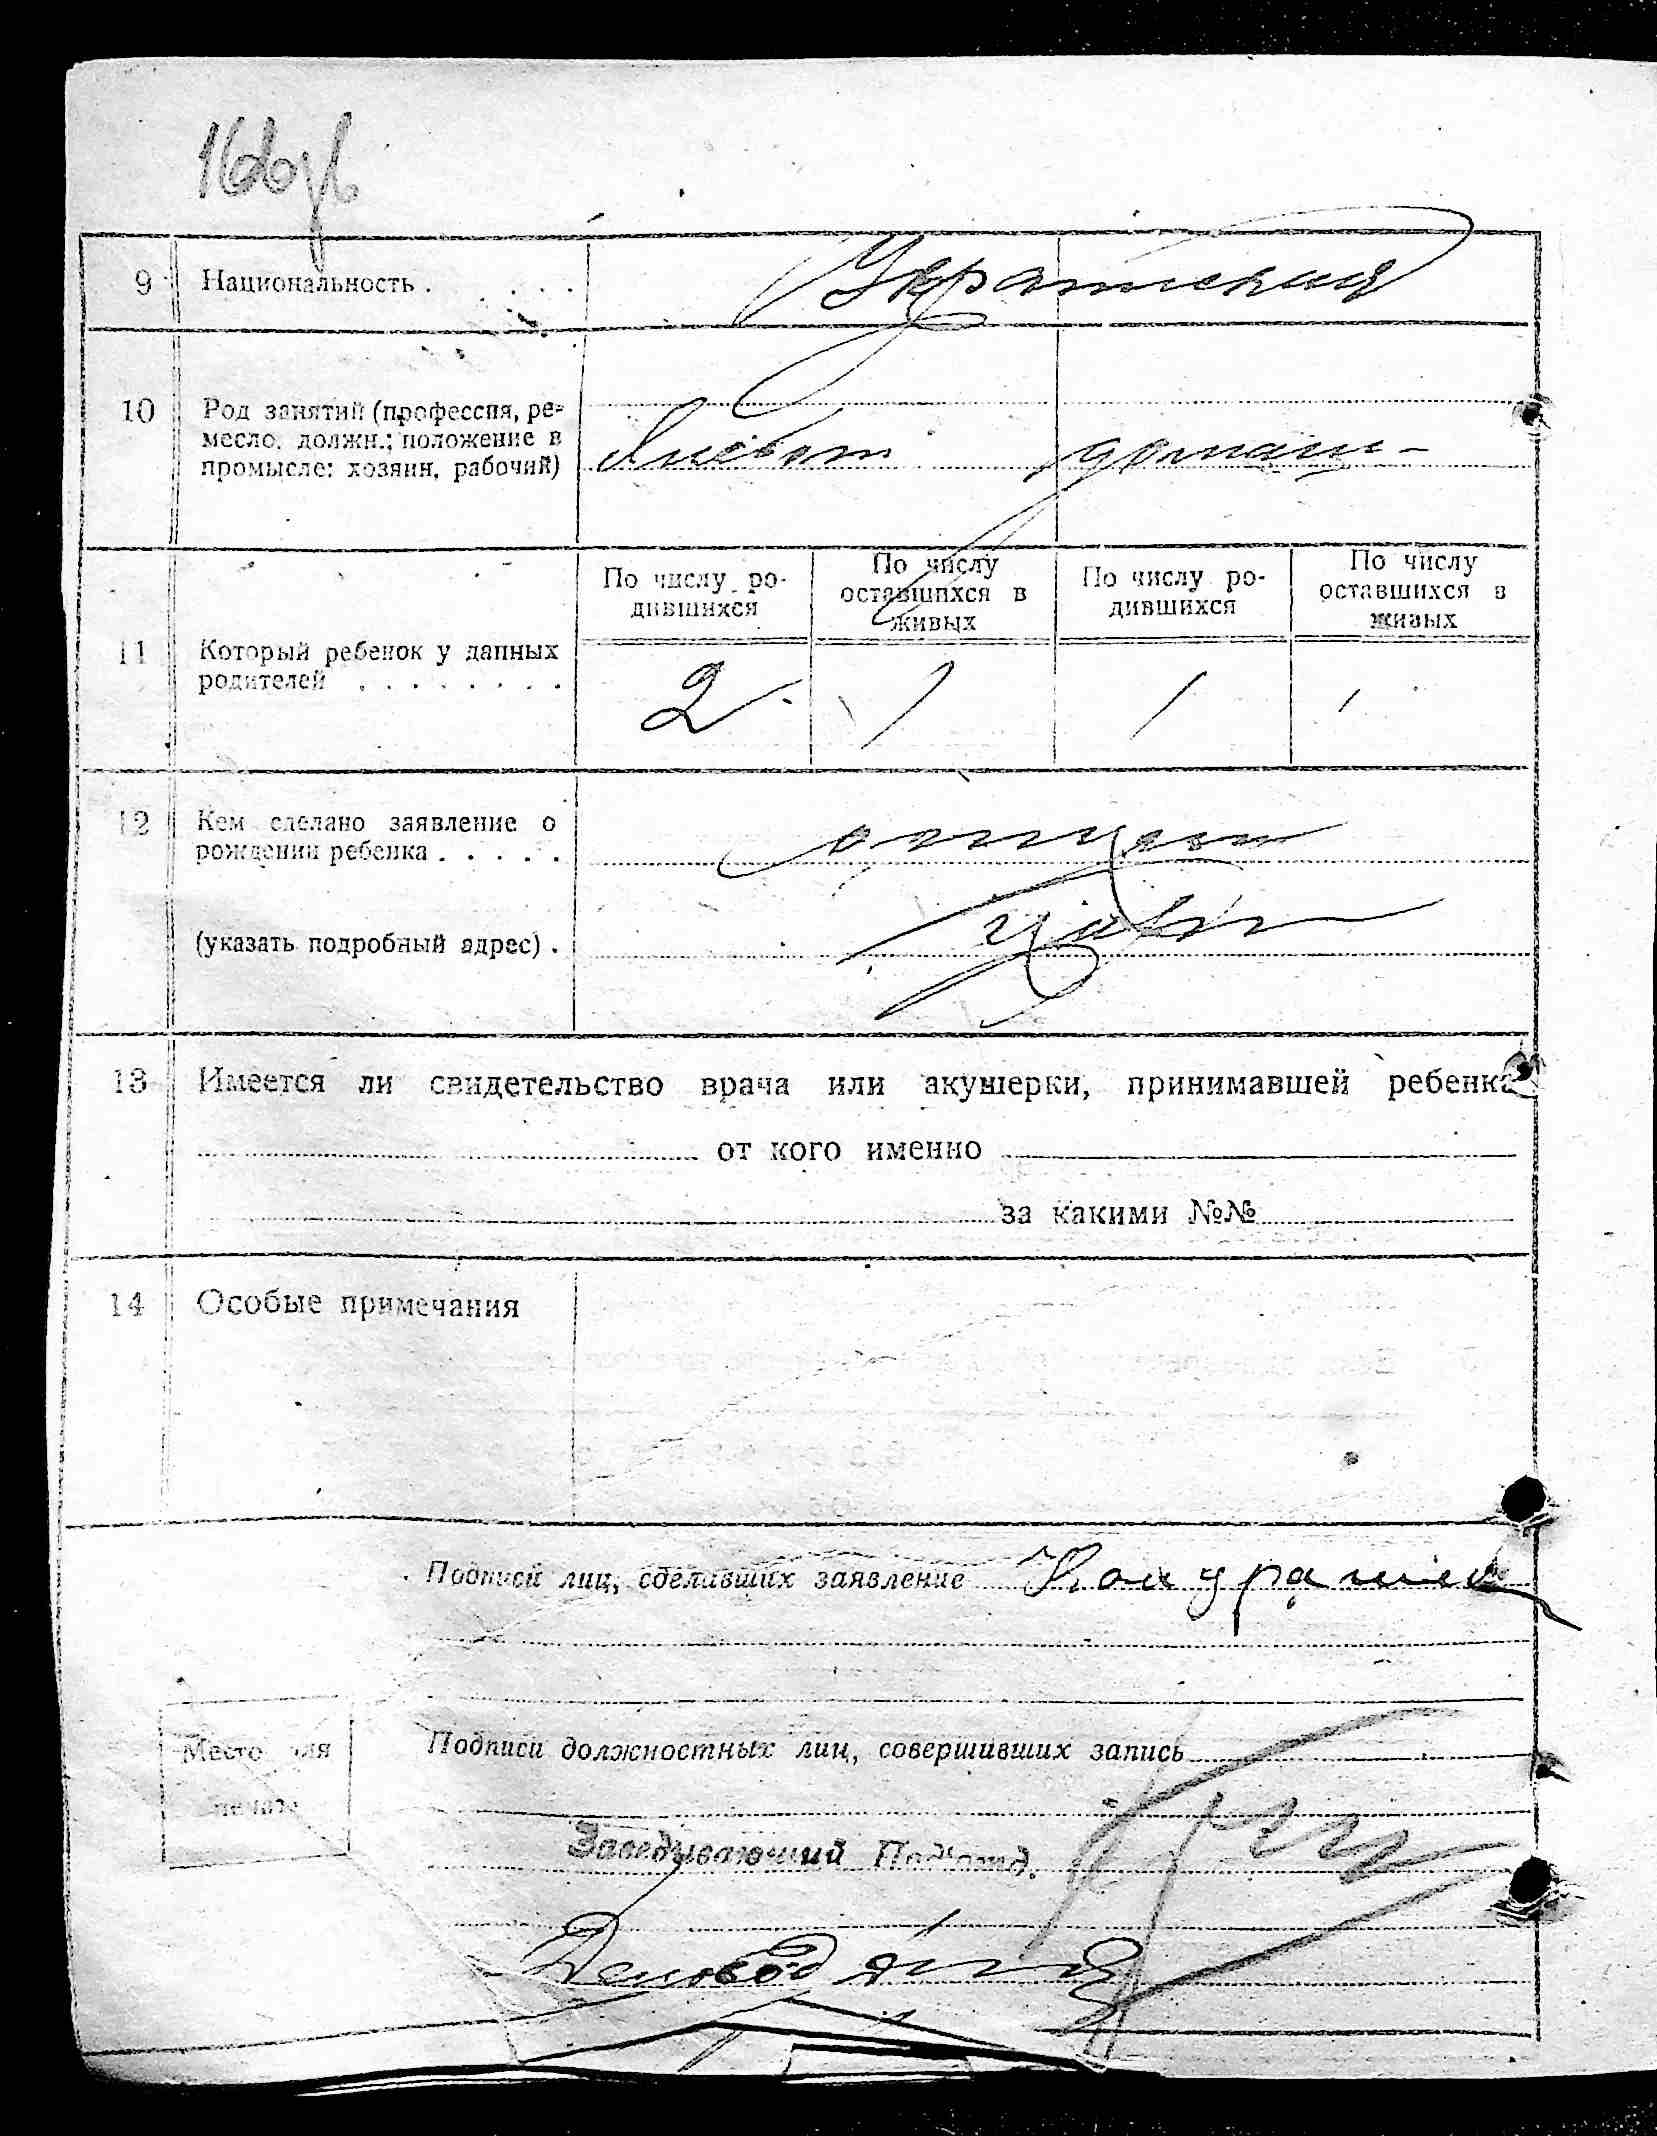 16об
9 Национальность . . . . . Украинская
10 Род занятий (профессия, ре-
месло, должн.; положение в
промысле: хозяин, рабочий) домаш-
По числу ро-
дившихся
По числу
оставшихся в
живых
По числу ро-
дившихся
По числу
оставшихся в
живых
11 Который ребенок у данных
родителей . . . . . . . . 2 1 1
12 Кем сделано заявление о
рождении ребенка . . . . . отцом
(указать подробный адрес) .
13 Имеется ли свидетельство врача или акушерки, принимавшей ребенка
от кого именно
за какими №№
14 Особые примечания
Подписи лиц, сделавших заявление
Место для
печати
Подписи должностных лиц, совершивших запись
Заведывающий Под'отд.
Деловод